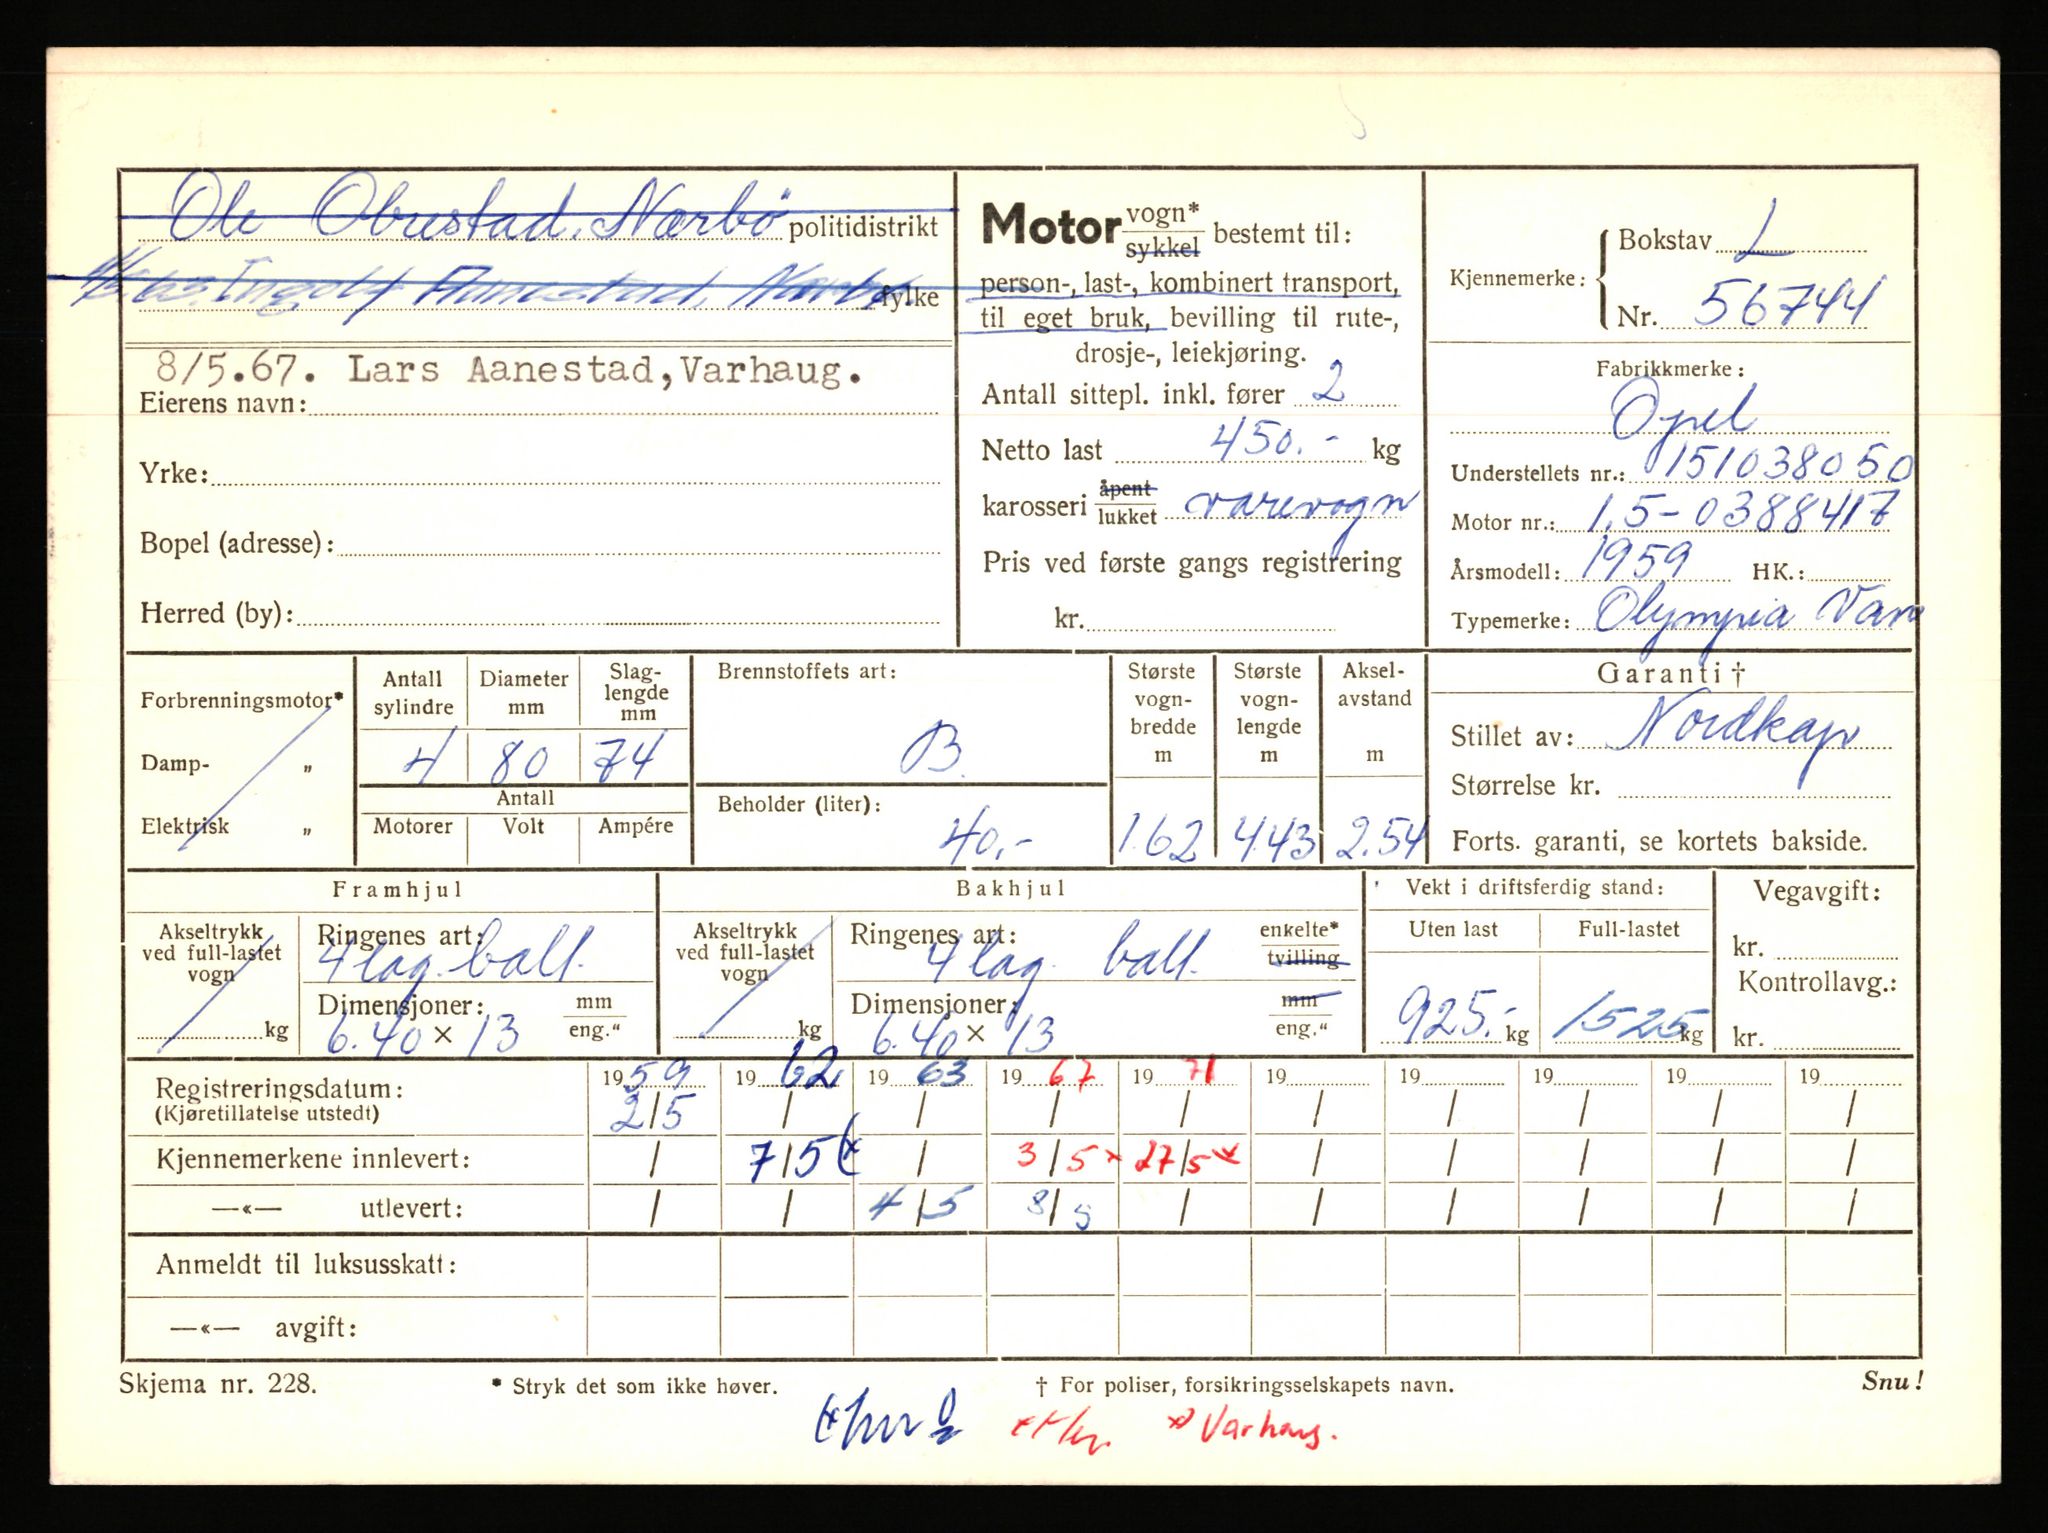 Ole Obrestad, Nærbø politidistrikt
Ingolf Aanestad, Nærbø fylke
8/5.67. Lars Aanestad, Varhaug.
Eierens navn:
Yrke:
Bopel (adresse):
Herred (by):
Motor vogn* sykkel bestemt til:
person-, last-, kombinert transport,
til eget bruk, bevilling til rute-,
drosje-, leiekjøring.
Antall sittepl. inkl. fører 2
Netto last 450.- kg
karosseri åpent lukket varevogn
Pris ved første gangs registrering
kr.
Kjennemerke: Bokstav L
Nr. 56744
Fabrikkmerke:
Opel
Understellets nr.: 151038050
Motor nr.: 1.5-0388417
Årsmodell: 1959 HK.:
Typemerke: Olympia Van
Forbrenningsmotor*
Damp- „
Elektrisk „
Antall sylindre Diameter mm Slag-lengde mm
4 80 74
Antall
Motorer Volt Ampére
Brennstoffets art:
B.
Beholder (liter):
40.-
Største vogn-bredde m Største vogn-lengde m Aksel-avstand m
1.62 4.43 2.54
Garanti †
Stillet av: Nordkap
Størrelse kr.
Forts. garanti, se kortets bakside.
Framhjul
Akseltrykk ved full-lastet vogn kg
Ringenes art: 4 lag. ball.
Dimensjoner: mm eng."
6.40 x 13
Bakhjul
Akseltrykk ved full-lastet vogn kg
Ringenes art: enkelte* tvilling
4 lag. ball.
Dimensjoner: mm eng."
6.40 x 13
Vekt i driftsferdig stand:
Uten last Full-lastet
925.- kg 1525 kg
Vegavgift:
kr.
Kontrollavg.:
kr.
Registreringsdatum: 1959 1962 1963 1967 1971 19 19 19 19 19
(Kjøretillatelse utstedt) 2/5 / / / / / / / / /
Kjennemerkene innlevert: / 7/5 (x / 3/5 x 27/5 x / / / / /
—«— utlevert: / / 4/5 8/5 / / / / / /
Anmeldt til luksusskatt:
—«— avgift:
Skjema nr. 228. * Stryk det som ikke høver. † For poliser, forsikringsselskapets navn. Snu!
x) Varhaug.